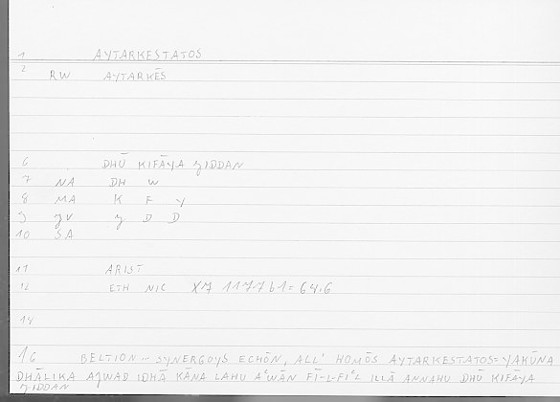 1 AYTARKESTATOS
2 RW AYTARKĒS
6 DHŪ KIFĀYA ʒIDDAN
7 NA DH W
8 MA K F Y
9 ʒV ʒ D D
10 SA
11 ARIST
12 ETH NIC X7 1177b1=64.6
14
16 BELTION – SYNERGOYS ECHŌN, ALL' HOMŌS AYTARKESTATOS=YAKŪNA
DHĀLIKA AʒWAD IDHĀ KĀNA LAHU AʿWĀN FĪ-L-FIʿL ILLĀ ANNAHU DHŪ KIFĀYA
ʒIDDAN